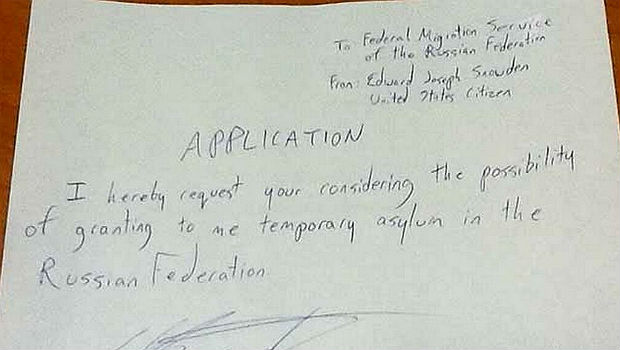 To: Federal Migration Service
of the Russian Federation
From: Edward Joseph Snowden
United States Citizen
APPLICATION
I hereby request your considering the possibility
of granting to me temporary asylum in the
Russian Federation.